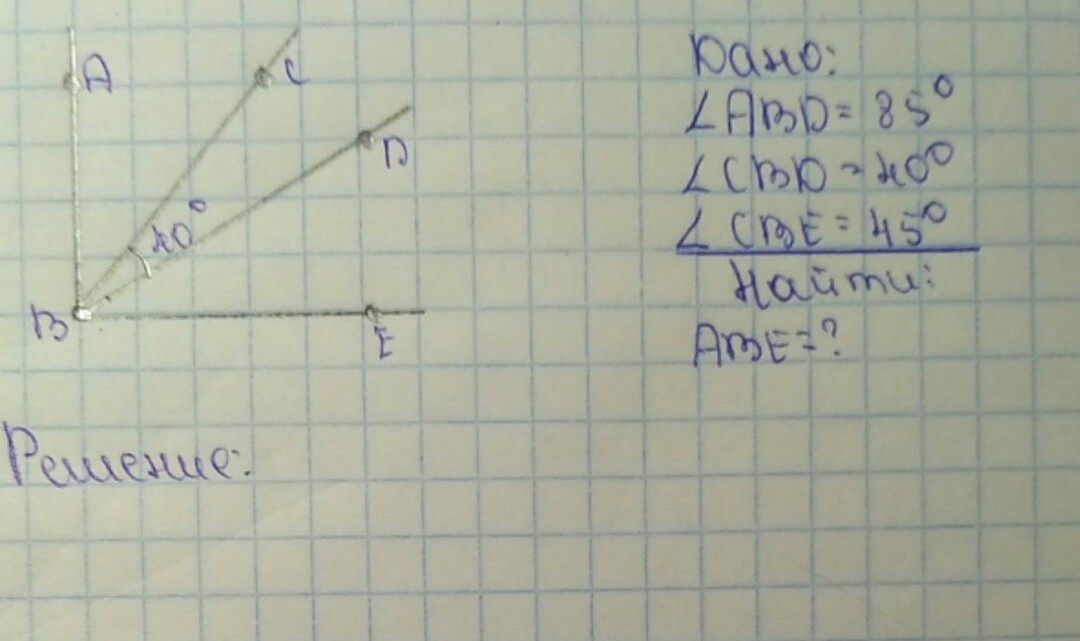 A
C
D
40°
B
E
Дано:
∠ABD = 85°
∠CBD = 40°
∠CBE = 45°
Найти:
ABE = ?
Решение: